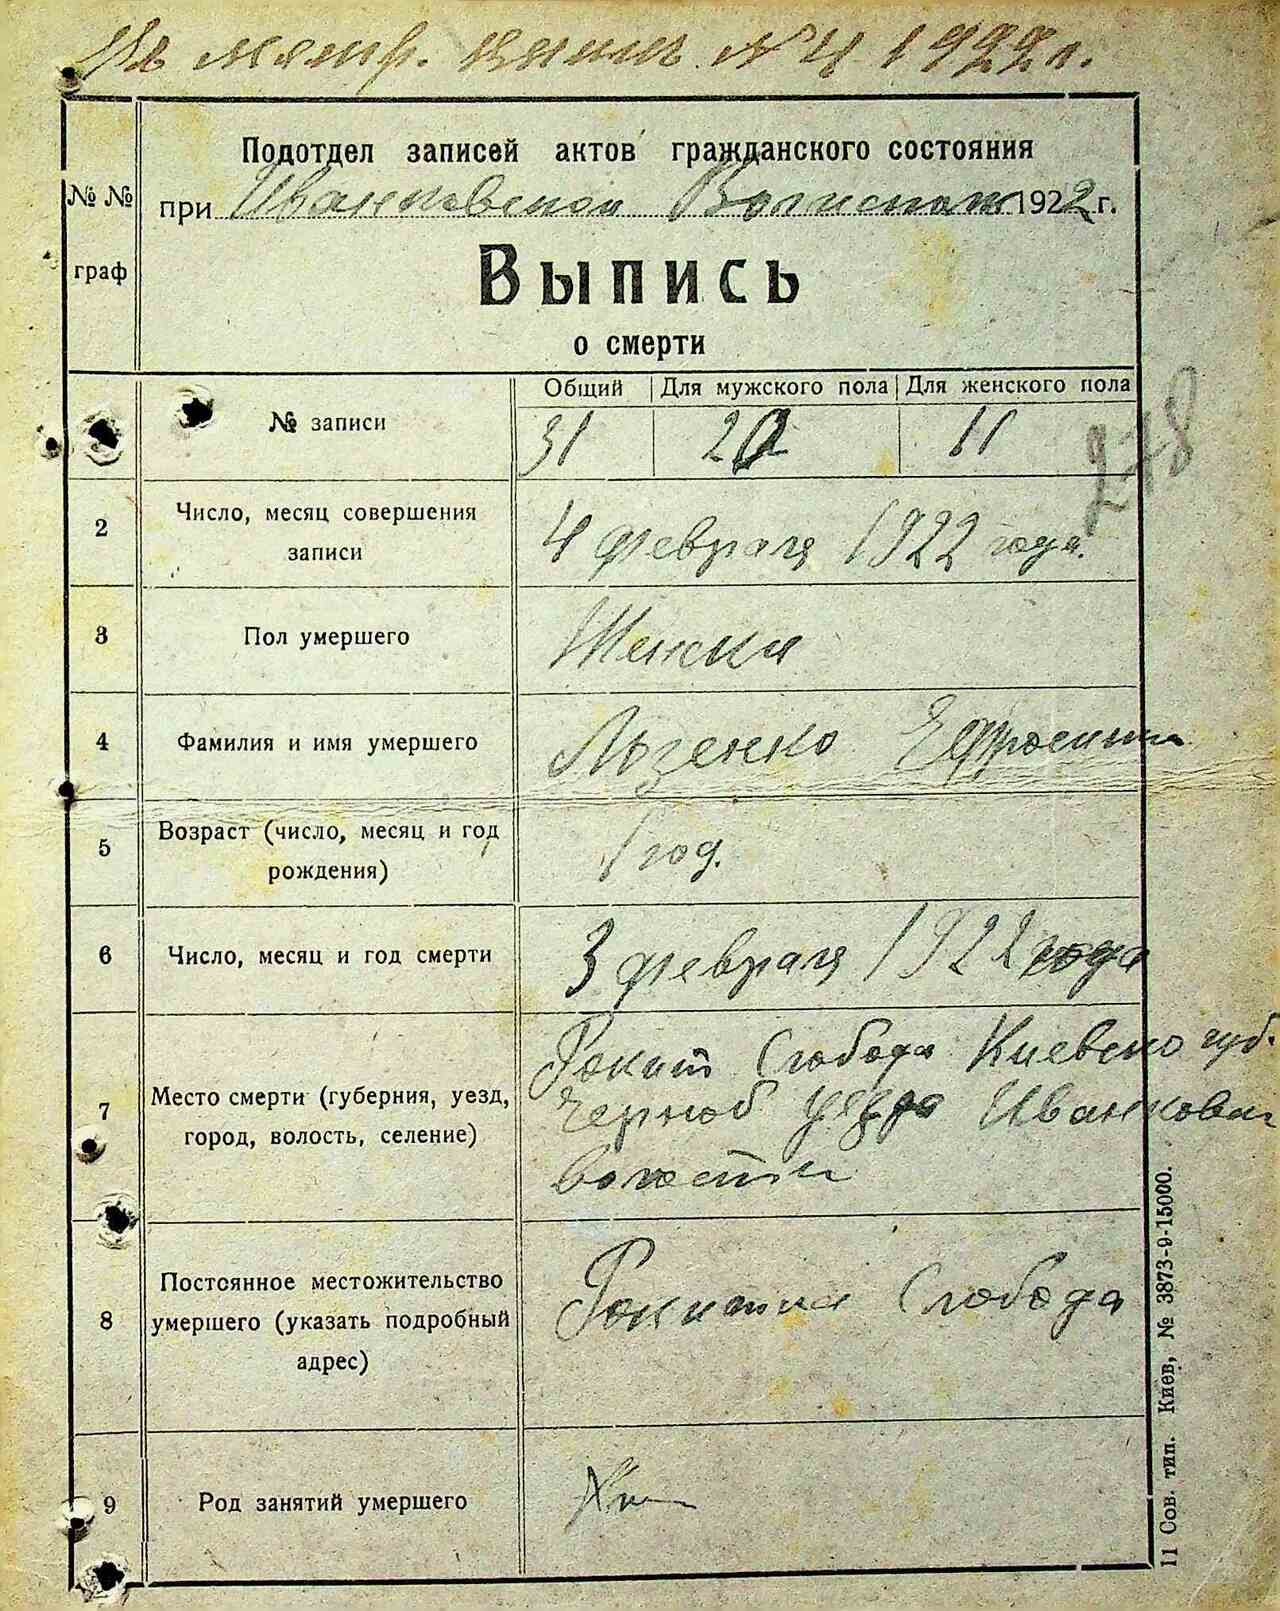 метр. книги №4 1922 г.
Подотдел записей актов гражданского состояния
№ № при Иванковской 1922 г.
граф
Выпись
о смерти
Общий Для мужского пола Для женского пола
№ записи 31 20 11
278
2 Число, месяц совершения записи 4 февраля 1922 года.
3 Пол умершего Женски
4 Фамилия и имя умершего Ефросиния
5 Возраст (число, месяц и год рождения) 1 год.
6 Число, месяц и год смерти 3 февраля 1922 года
7 Место смерти (губерния, уезд, город, волость, селение) Рокит Слобода Киевско губ.
Черноб уезда Иванковск
волости
8 Постоянное местожительство умершего (указать подробный адрес) Рокитна Слобода
9 Род занятий умершего
11 Сов. тип. Киев, № 3873-9-15000.